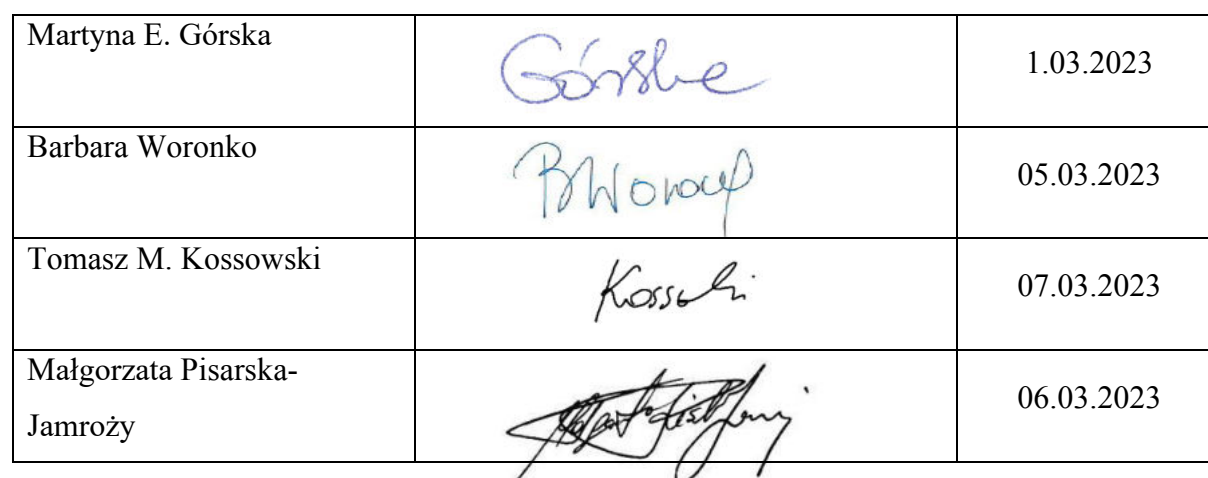 Martyna E. Górska
Górska
1.03.2023
Barbara Woronko
BWoronko
05.03.2023
Tomasz M. Kossowski
Kossowski
07.03.2023
Małgorzata Pisarska-
Jamroży
06.03.2023